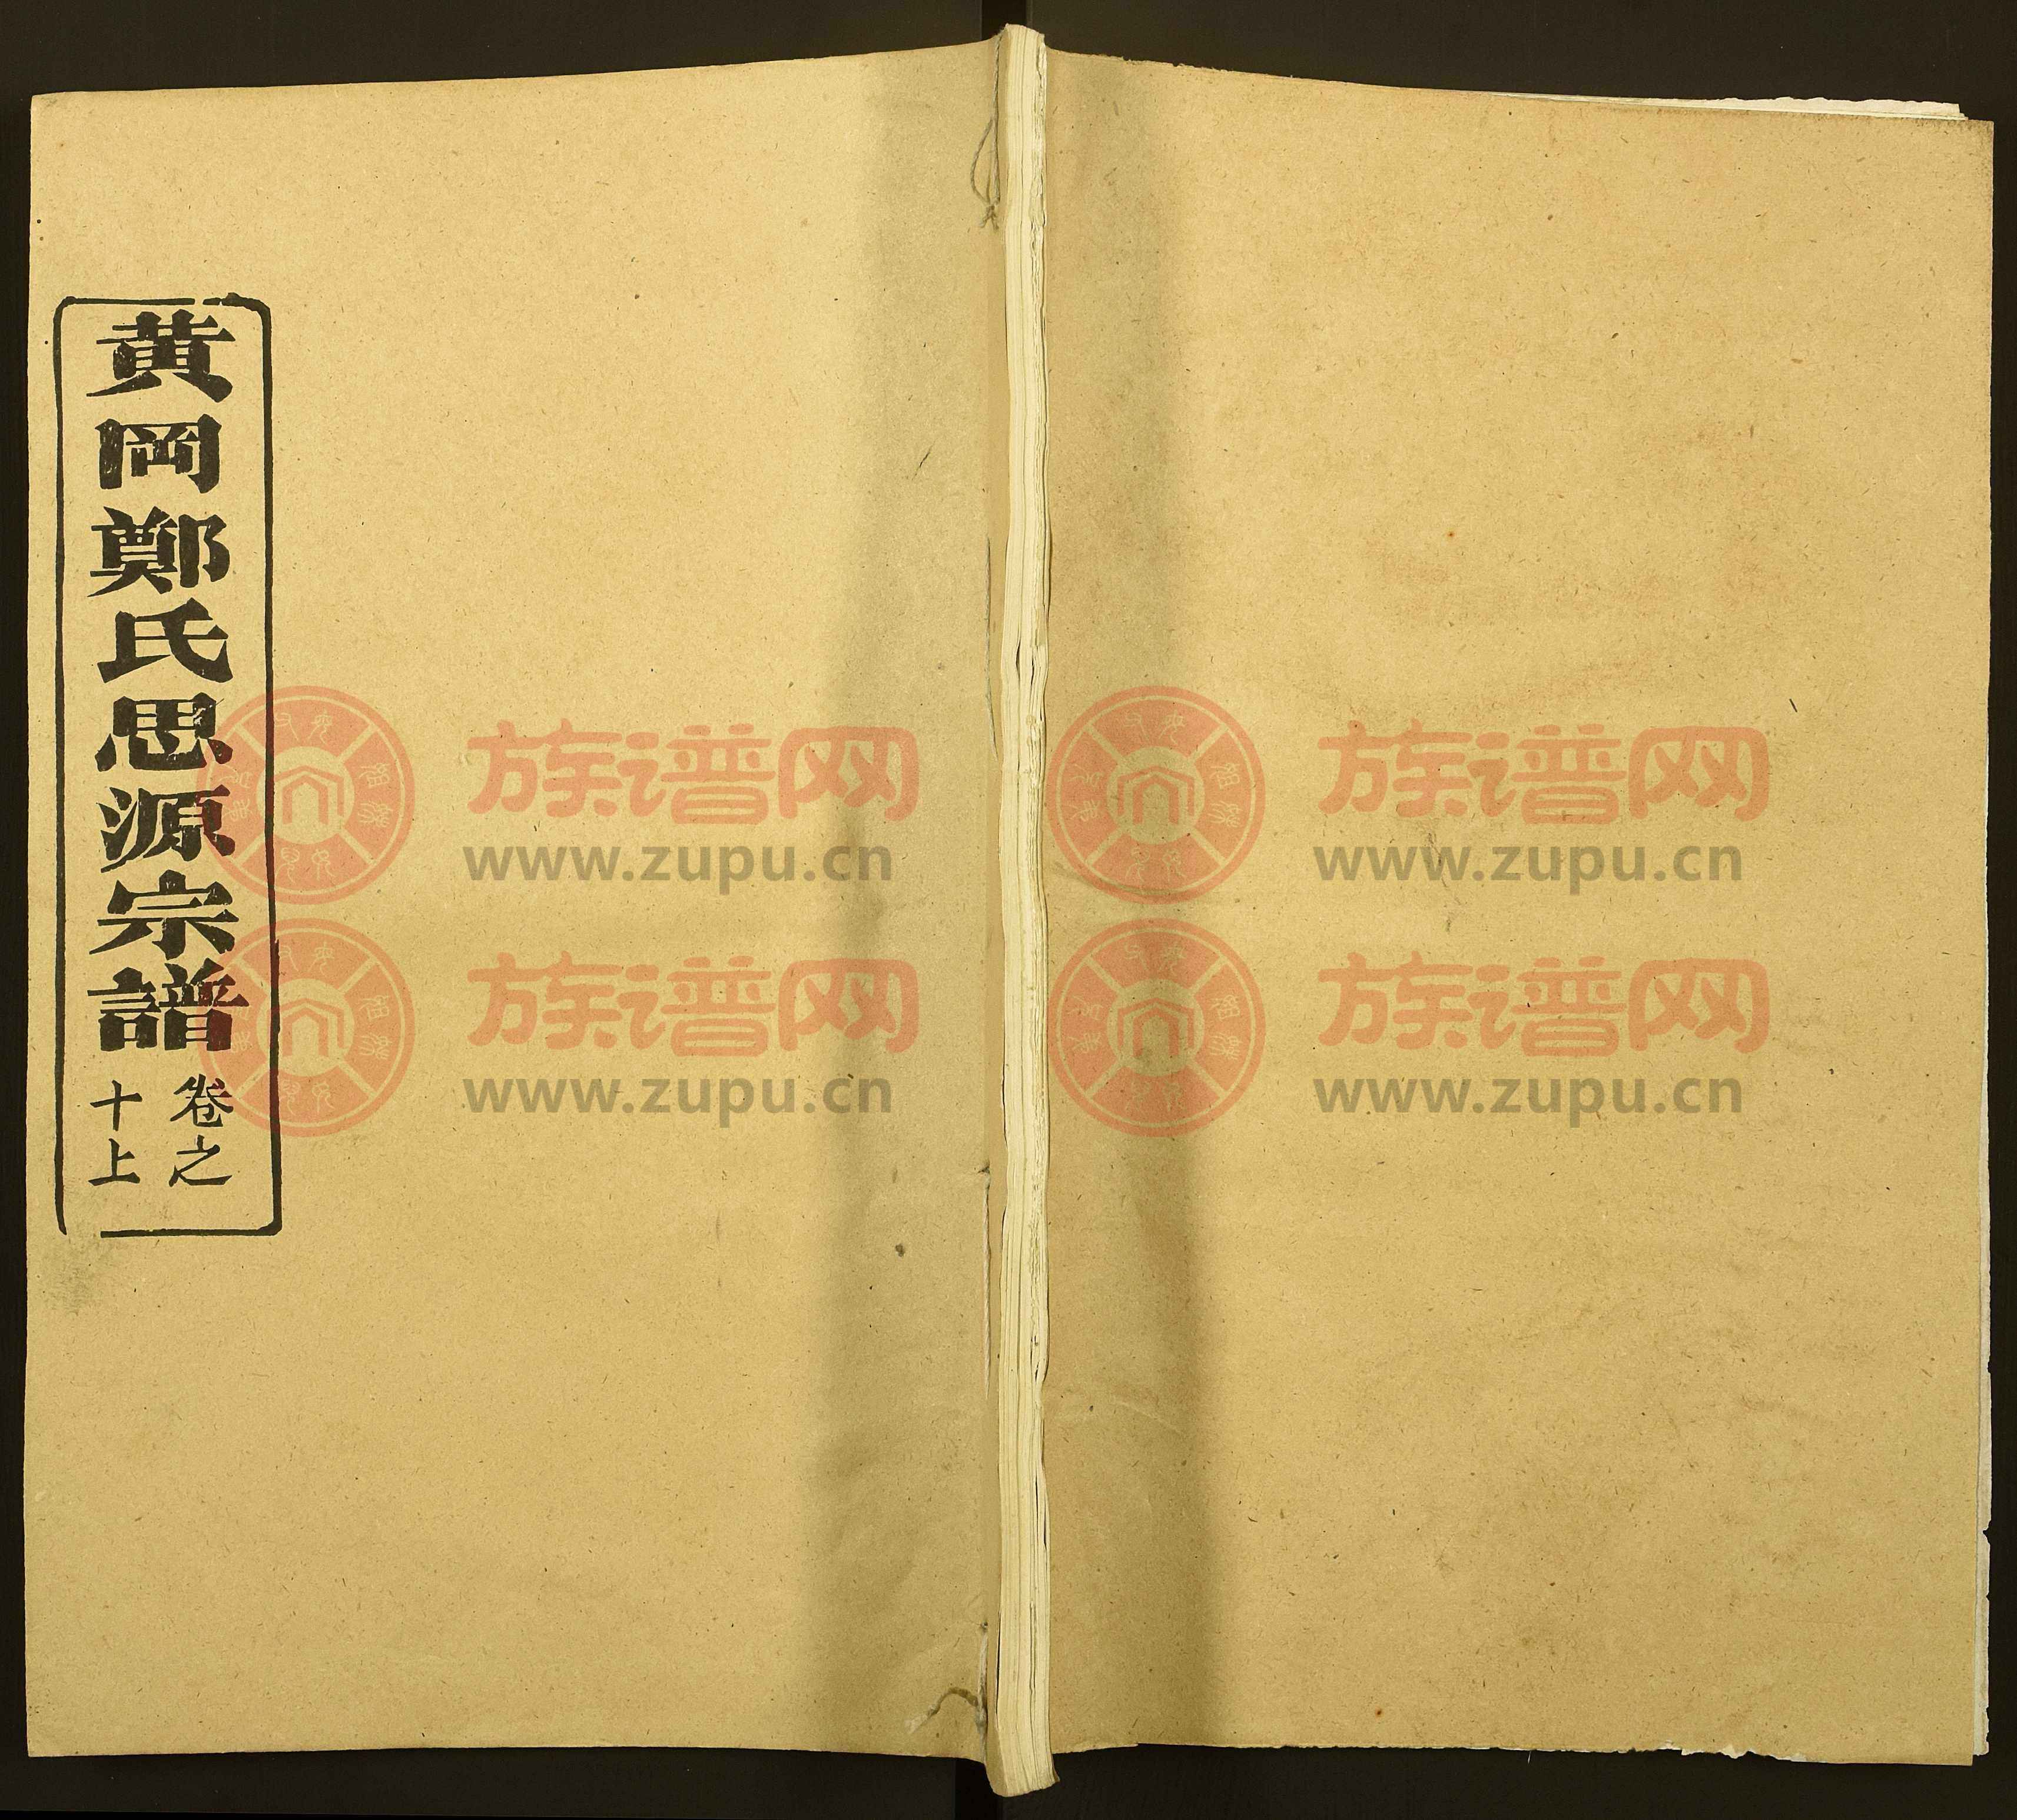 黄岡鄭氏思源宗譜
卷之
十上
族谱网
www.zupu.cn
族谱网
www.zupu.cn
族谱网
www.zupu.cn
族谱网
www.zupu.cn